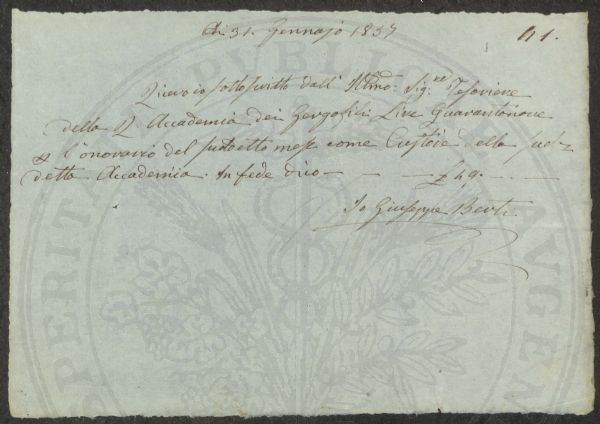 Di 31. Gennajo 1837
41.
Ricevo io sottoscritto dall' Illmo: Sig.re Tesoriere
della R Accademia dei Gergofili Lire Quarantanove
l'onorario del sudetto mese come Custode della sud=
detta Accademia. In fede dico — — — £ 49. — —
Io Giuseppe Berti
PUBLICAE
PROSPERITATI
AUGEN